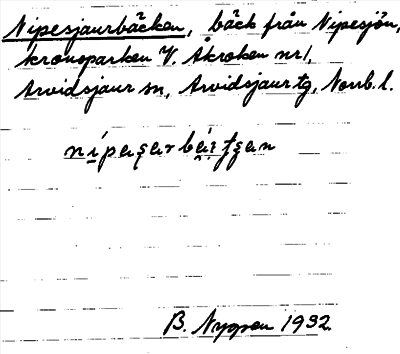 Nipesjaurbäcken, bäck från Nipesjön,
kronoparken V. Åkroken nr1,
Arvidsjaur sn, Arvidsjaur tg, Norrb. l.
B. Nygren 1932.